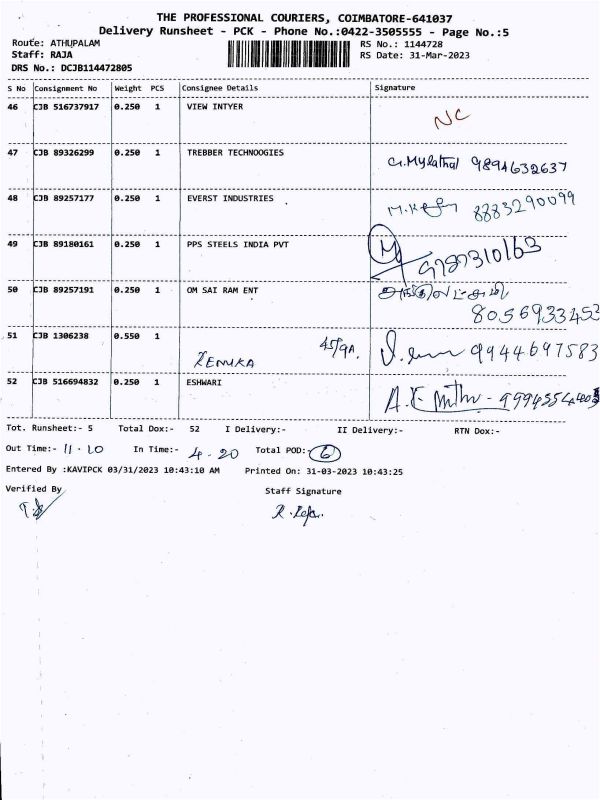 THE PROFESSIONAL COURIERS, COIMBATORE-641037
Delivery Runsheet - PCK - Phone No.:0422-3505555 - Page No.:5
Route: ATHUPALAM RS No.: 1144728
Staff: RAJA RS Date: 31-Mar-2023
DRS No.: DCJB114472805
S No Consignment No Weight PCS Consignee Details Signature
46 CJB 516737917 0.250 1 VIEW INTYER NC
47 CJB 89326299 0.250 1 TREBBER TECHNOOGIES G.Mylathal 9894632637
48 CJB 89257177 0.250 1 EVERST INDUSTRIES 8883290099
49 CJB 89180161 0.250 1 PPS STEELS INDIA PVT 9787310163
50 CJB 89257191 0.250 1 OM SAI RAM ENT 8056933453
51 CJB 1306238 0.550 1 RENUKA 45/9A. 9944697583
52 CJB 516694832 0.250 1 ESHWARI
Tot. Runsheet:- 5 Total Dox:- 52 I Delivery:- II Delivery:- RTN Dox:-
Out Time:- 11.10 In Time:- 4.20 Total POD:- 6
Entered By :KAVIPCK 03/31/2023 10:43:10 AM Printed On: 31-03-2023 10:43:25
Verified By Staff Signature